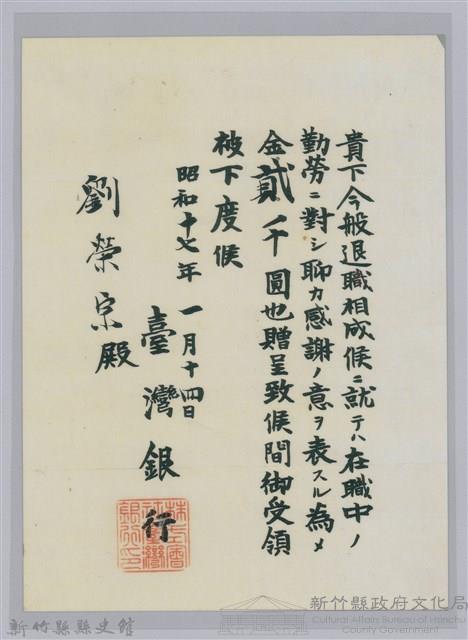 貴下今般退職相成候ニ就テハ在職中ノ
勤勞ニ對シ聊カ感謝ノ意ヲ表スル為メ
金貳千圓也贈呈致候間御受領
被下度候
昭和十七年一月十四日
臺灣銀行
劉榮宗殿
株式會社臺灣銀行之印
新竹縣縣史館
新竹縣政府文化局
Cultural Affairs Bureau of Hsinchu
County Government